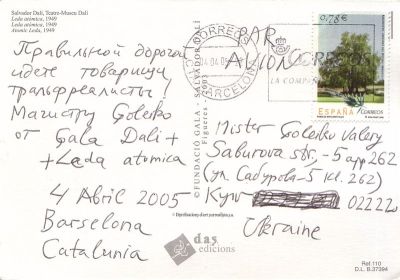 Salvador Dalí, Teatre-Museu Dalí
Leda atòmica, 1949
Leda atómica, 1949
Atomic Leda, 1949
Правильной дорогой
идете товарищи
трансфреалисты!
Магистру Goleiko
от Gala Dali +
+ Leda atomica
4 Abril 2005
Barselona
Catalunia
© FUNDACIÓ GALA - SALVADOR DALÍ
Figueres - 2005
das
edicions
CORREOS
04.04.05
BARCELONA
PAR
AVION
CORREOS
LA COMPA
0,78 €
ESPAÑA
CORREOS
Mister Goleiko Valery
Saburova str, -5 app 262
(ул Сабурова-5 кв. 262)
Kyiv 02222
Ukraine
Ref.110
D.L. B.37394